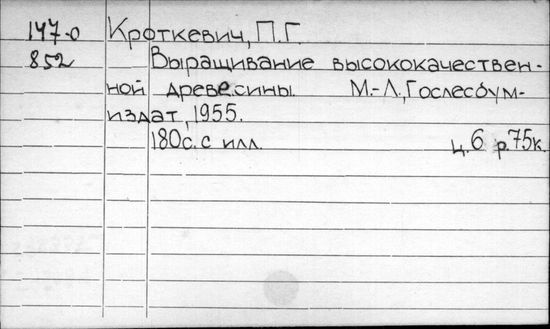 147-0 Кроткевич, П.Г.
852 Выращивание высококачествен-
ной древесины. М.-Л., Гослесбум-
издат, 1955.
180с. с илл. ц. 6 р. 75к.